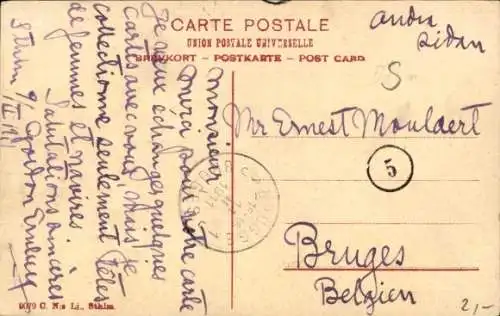 CARTE POSTALE
UNION POSTALE UNIVERSELLE
BREVKORT - POSTKARTE - POST CARD
andra
sidan
S
Monsieur
Merci pour votre carte
Je veux echanger quelques
cartes avec vous mais je
collectionne seulement têtes
de femmes et navires.
Salutations sincères
Sthlm 9/
Gordon
Mr Ernest Moulaert
5
BRUGGE
Bruges
Belgien
Sthlm.
2,-